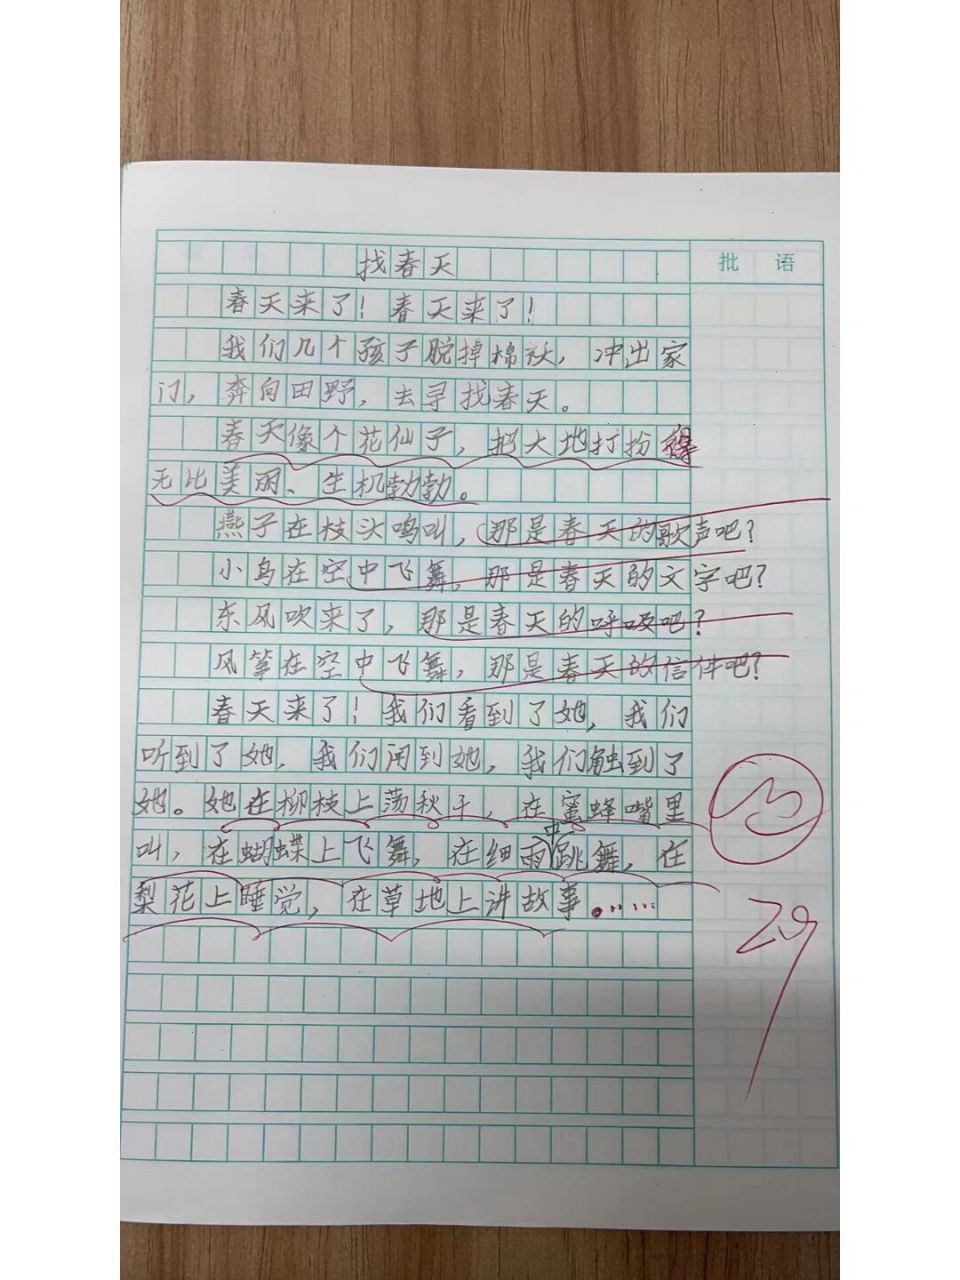 找春天
批 语
春天来了！春天来了！
我们几个孩子脱掉棉袄，冲出家
门，奔向田野，去寻找春天。
春天像个花仙子，把大地打扮得
无比美丽、生机勃勃。
燕子在枝头鸣叫，那是春天的歌声吧？
小鸟在空中飞舞，那是春天的文字吧？
东风吹来了，那是春天的呼吸吧？
风筝在空中飞舞，那是春天的信件吧？
春天来了！我们看到了她，我们
听到了她，我们闻到她，我们触到了
她。她在柳枝上荡秋千，在蜜蜂嘴里
叫，在蝴蝶上飞舞，在细雨中跳舞，在
梨花上睡觉，在草地上讲故事。……
29